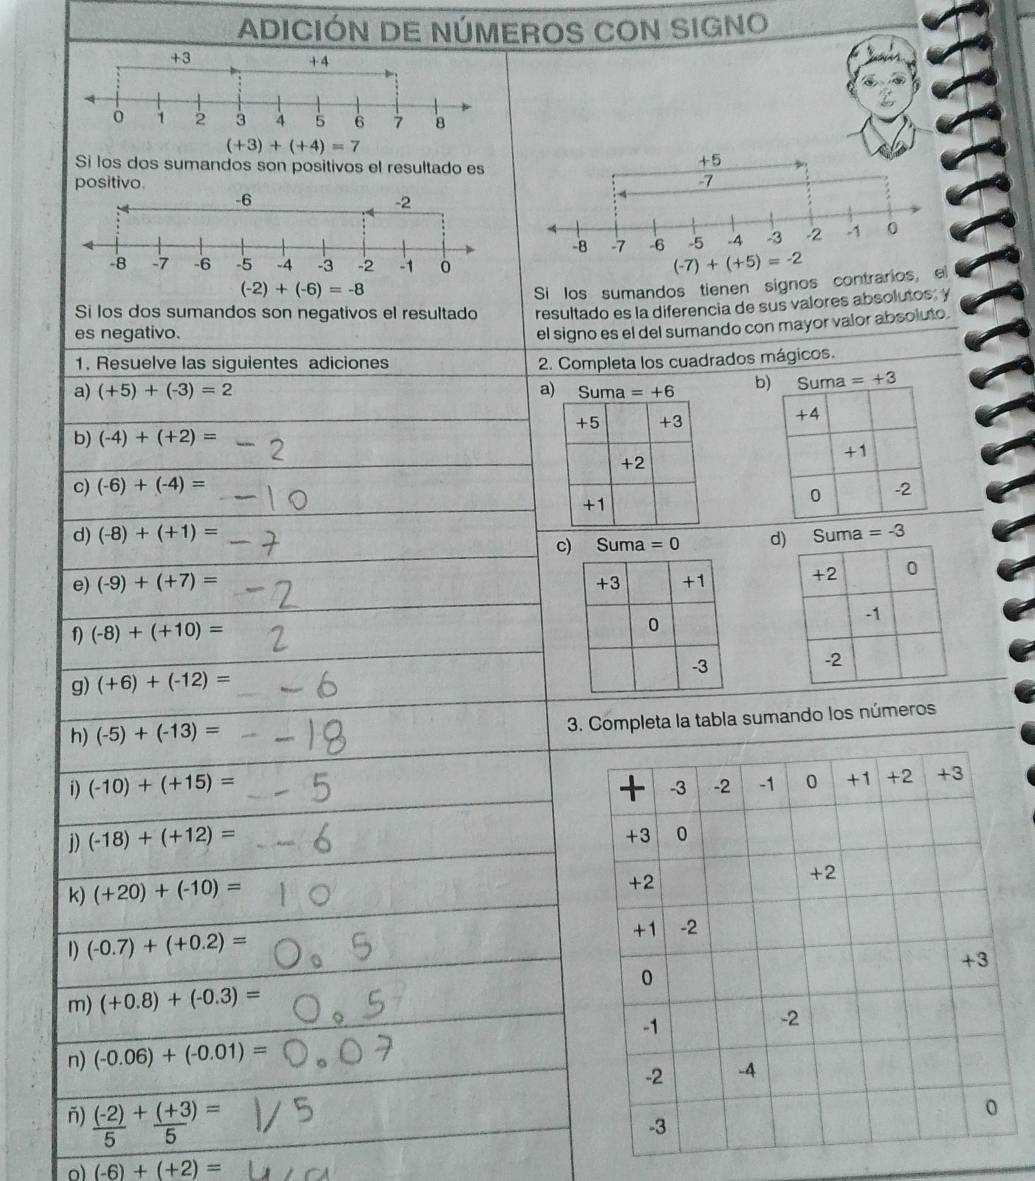 ADICIÓN DE NÚMEROS CON SIGNO
+3 +4
0 1 2 3 4 5 6 7 8
(+3) + (+4) = 7
Si los dos sumandos son positivos el resultado es
positivo.
-6 -2
-8 -7 -6 -5 -4 -3 -2 -1 0
(-2) + (-6) = -8
Si los dos sumandos son negativos el resultado
es negativo.
+5
-7
-8 -7 -6 -5 -4 -3 -2 -1 0
(-7) + (+5) = -2
Si los sumandos tienen signos contrarios, el
resultado es la diferencia de sus valores absolutos; y
el signo es el del sumando con mayor valor absoluto.
1. Resuelve las siguientes adiciones
a) (+5) + (-3) = 2
b) (-4) + (+2) = -2
c) (-6) + (-4) = -10
d) (-8) + (+1) = -7
e) (-9) + (+7) = -2
f) (-8) + (+10) = 2
g) (+6) + (-12) = -6
h) (-5) + (-13) = -18
i) (-10) + (+15) = -5
j) (-18) + (+12) = -6
k) (+20) + (-10) = 10
l) (-0.7) + (+0.2) = 0.5
m) (+0.8) + (-0.3) = 0.5
n) (-0.06) + (-0.01) = 0.07
ñ) (-2) + (+3) = 1/5
5 5
o) (-6) + (+2) =
2. Completa los cuadrados mágicos.
a) Suma = +6
+5 +3
+2
+1
b) Suma = +3
+4
+1
0 -2
c) Suma = 0
+3 +1
0
-3
d) Suma = -3
+2 0
-1
-2
3. Completa la tabla sumando los números
+ -3 -2 -1 0 +1 +2 +3
+3 0
+2 +2
+1 -2
0 +3
-1 -2
-2 -4
-3 0